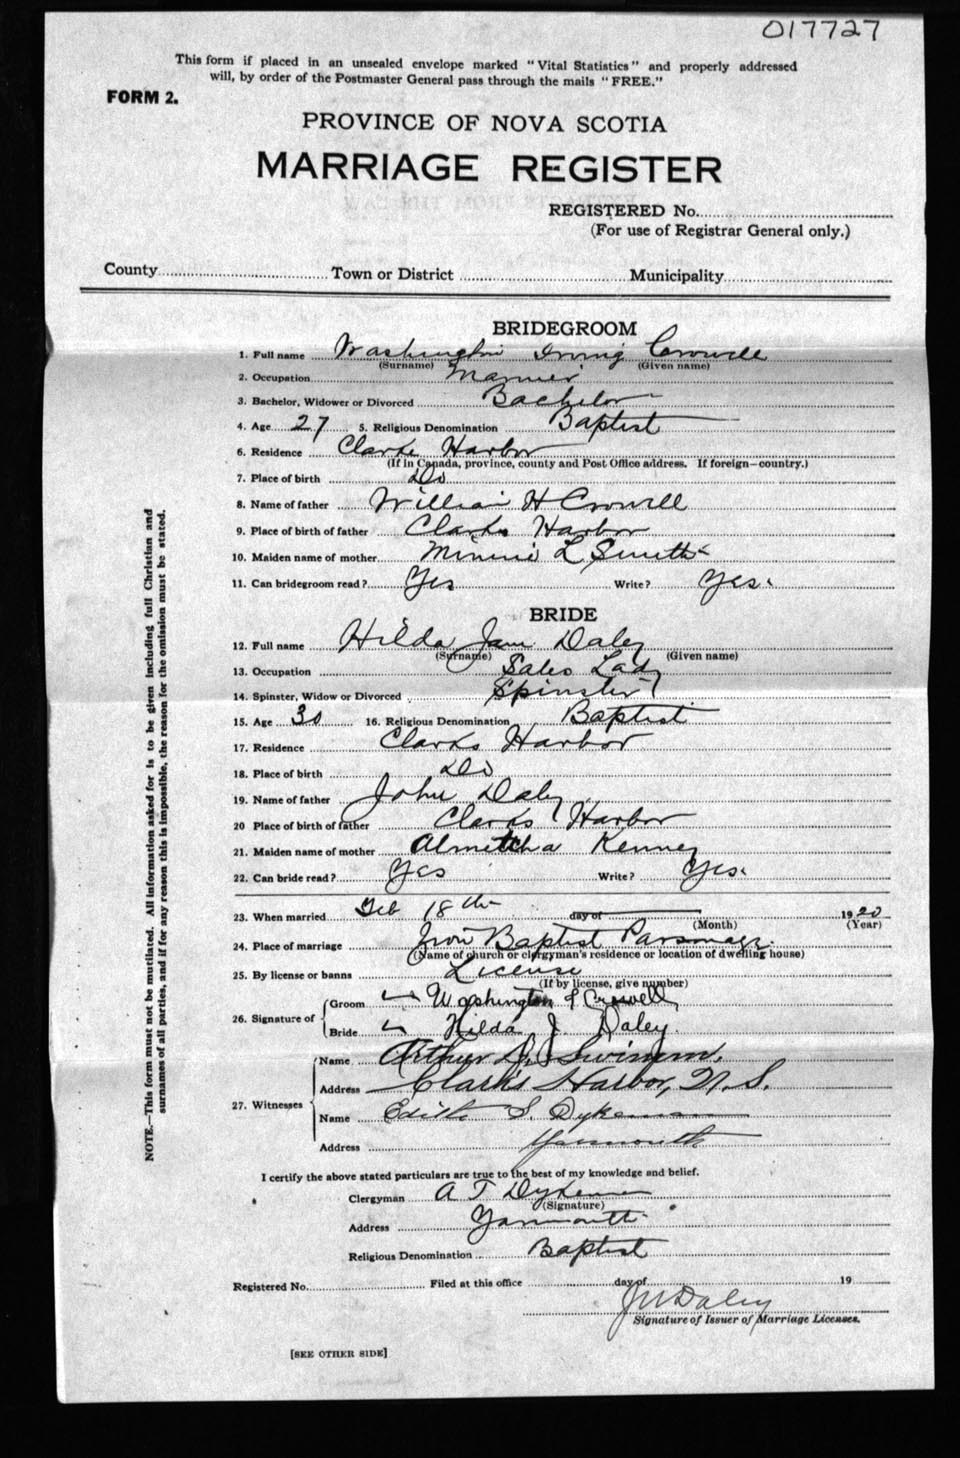 017727
This form if placed in an unsealed envelope marked "Vital Statistics" and properly addressed
will, by order of the Postmaster General pass through the mails "FREE."
FORM 2.
PROVINCE OF NOVA SCOTIA
MARRIAGE REGISTER
REGISTERED No.
(For use of Registrar General only.)
County Town or District Municipality
BRIDEGROOM
1. Full name Washington Irving Crowell
(Surname) (Given name)
2. Occupation Mariner
3. Bachelor, Widower or Divorced Bachelor
4. Age 27 5. Religious Denomination Baptist
6. Residence Clarks Harbor
(If in Canada, province, county and Post Office address. If foreign—country.)
7. Place of birth Do
8. Name of father William H Crowell
9. Place of birth of father Clarks Harbor
10. Maiden name of mother Minnie L Smith
11. Can bridegroom read? Yes Write? Yes.
BRIDE
12. Full name Hilda Jane Daley
(Surname) (Given name)
13. Occupation Sales Lady
14. Spinster, Widow or Divorced Spinster
15. Age 30 16. Religious Denomination Baptist
17. Residence Clarks Harbor
18. Place of birth Do
19. Name of father John Daley
20 Place of birth of father Clarks Harbor
21. Maiden name of mother Almetcha Kenney
22. Can bride read? Yes Write? Yes.
23. When married Feb 18th day of 1920
(Month) (Year)
24. Place of marriage Baptist Parsonage
(Name of church or clergyman's residence or location of dwelling house)
25. By license or banns License
(If by license, give number)
26. Signature of
Groom Washington I Crowell
Bride Hilda J. Daley.
27. Witnesses
Name Arthur D. Swimm.
Address Clark's Harbor, N.S.
Name Edith S. Dykeman
Address Yarmouth
I certify the above stated particulars are true to the best of my knowledge and belief.
Clergyman A T Dykeman
(Signature)
Address Yarmouth
Religious Denomination Baptist
Registered No. Filed at this office day of 19
J W Daley
Signature of Issuer of Marriage Licenses.
[SEE OTHER SIDE]
NOTE.—This form must not be mutilated. All information asked for is to be given including full Christian and
surnames of all parties, and if for any reason this is impossible, the reason for the omission must be stated.